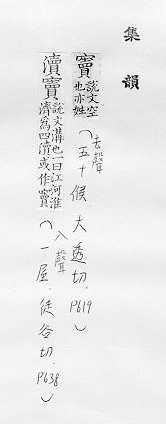 集韻
竇 說文空也亦姓（去聲 五十候 大透切．P619）
瀆竇 說文溝也一曰江河淮濟為四瀆或作竇（入聲 一屋．徒谷切．P638）